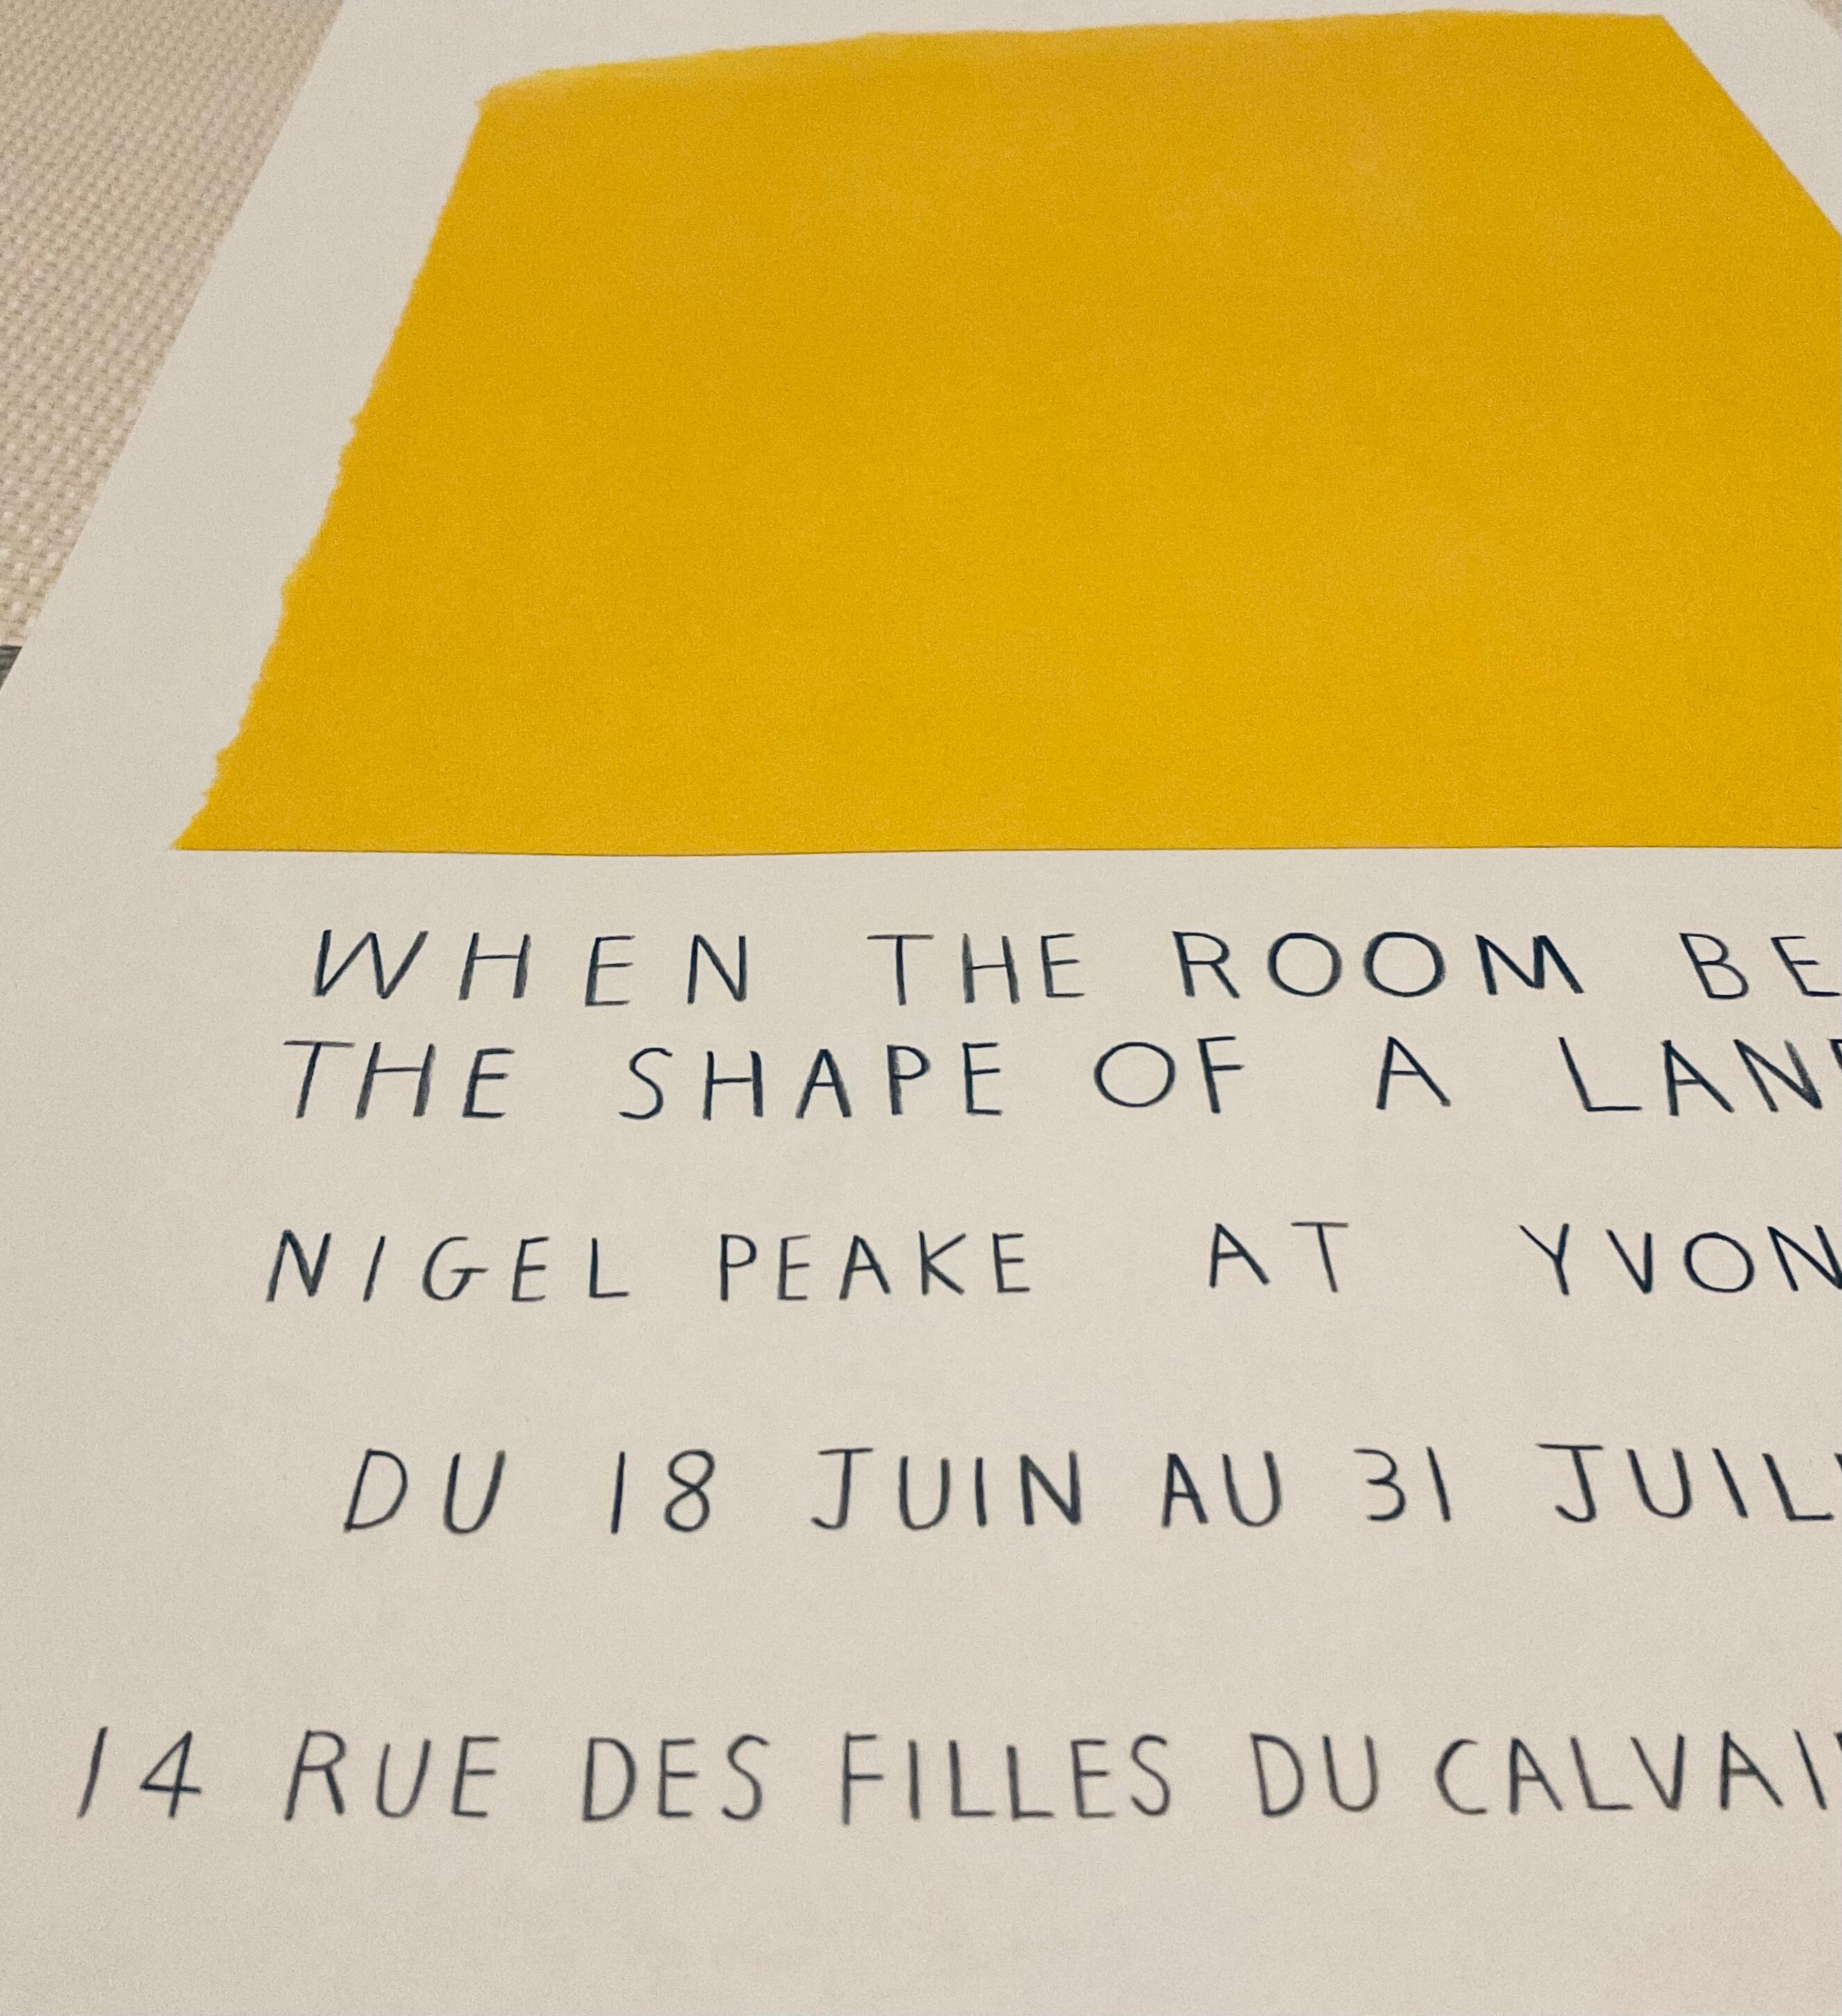 WHEN THE ROOM BE
THE SHAPE OF A LAN
NIGEL PEAKE AT YVON
DU 18 JUIN AU 31 JUIL
14 RUE DES FILLES DU CALVAI